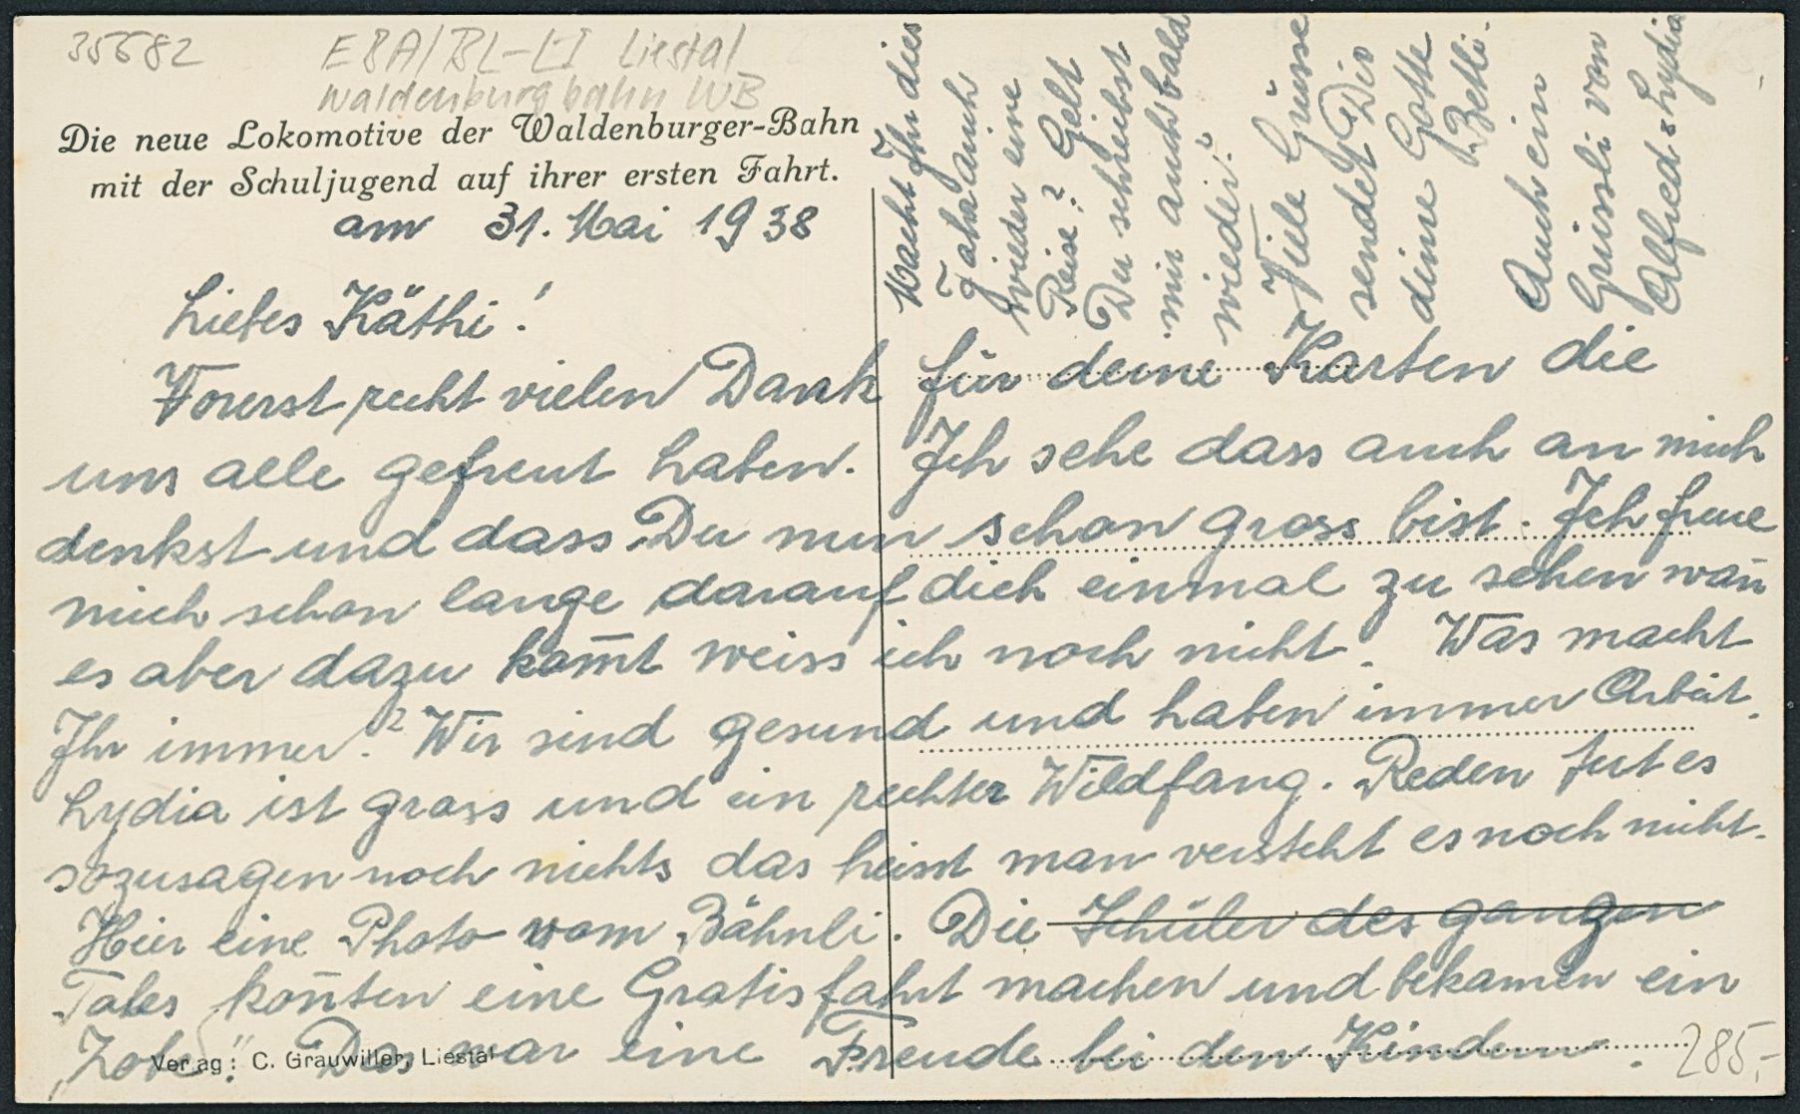 35682
EBA/BL-LI Liestal
Waldenburgbahn WB
Die neue Lokomotive der Waldenburger-Bahn
mit der Schuljugend auf ihrer ersten Fahrt.
am 31. Mai 1938
Liebes Käthi!
Vorerst recht vielen Dank für deine Karten die
uns alle gefreut haben. Ich sehe dass auch an mich
denkst und dass Du nun schon gross bist. Ich freue
mich schon lange darauf dich einmal zu sehen wan̅
es aber dazu kom̅t weiss ich noch nicht. Was macht
Ihr immer? Wir sind gesund und haben immer Arbeit.
Lydia ist gross und ein rechter Wildfang. Reden tut es
sozusagen noch nichts das heisst man versteht es noch nicht.
Hier eine Photo vom Bähnli. Die Schüler des ganzen
Tales kon̅ten eine Gratisfahrt machen und bekamen ein
„Zobe". Das war eine Freude bei den Kindern.
Verlag: C. Grauwiller, Liestal
285,-
Macht Ihr dies
Jahr auch
wieder eine
Reise? Gelt
Du schreibst
mir auch bald
wieder.
Viele Grüsse
sendet Dir
deine Gotte
Betli.
Auch ein
Grüssli von
Alfred & Lydia